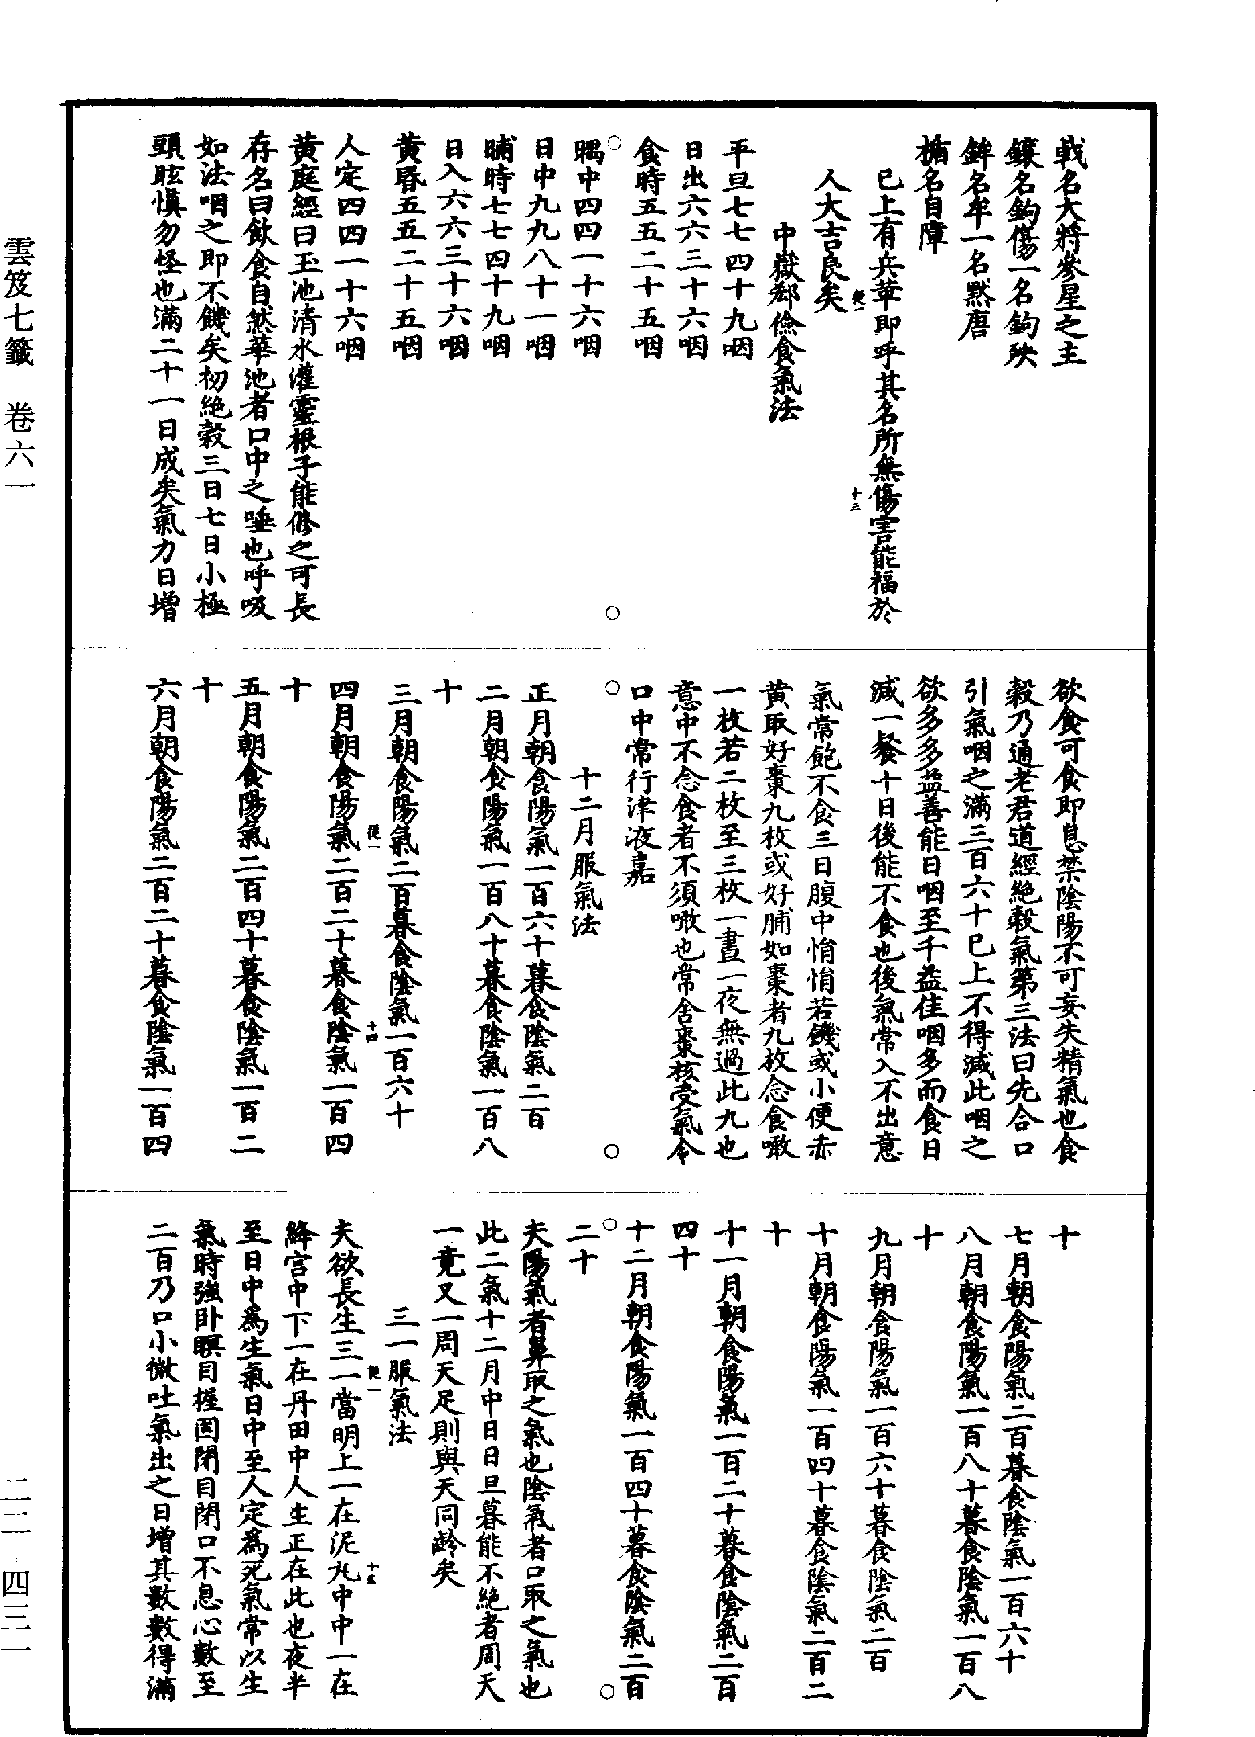 戟名大將參星之主
鑲名鉤傷一名鉤殃
鉾名牟一名默唐
楯名自障
已上有兵革即呼其名所無傷害能福於
人大吉良矣
中嶽郄儉食氣法
平旦七七四十九咽
日出六六三十六咽
食時五五二十五咽
隅中四四一十六咽
日中九九八十一咽
晡時七七四十九咽
日入六六三十六咽
黄昏五五二十五咽
人定四四一十六咽
黄庭經曰玉池清水灌靈根子能修之可長
存名曰飲食自然華池者口中之唾也呼吸
如法咽之即不饑矣初絶穀三日七日小極
頭眩慎勿怪也滿二十一日成矣氣力日增
欲食可食即息禁陰陽不可妄失精氣也食
穀乃通老君道經絶穀氣第三法曰先合口
引氣咽之滿三百六十已上不得減此咽之
欲多多益善能日咽至千益佳咽多而食日
減一餐十日後能不食也後氣常入不出意
氣常飽不食三日腹中悁悁若饑或小便赤
黄取好棗九枚或好脯如棗者九枚念食噉
一枚若二枚至三枚一晝一夜無過此九也
意中不念食者不須噉也常含棗核受氣令
口中常行津液嘉
十二月服氣法
正月朝食陽氣一百六十暮食陰氣二百
二月朝食陽氣一百八十暮食陰氣一百八
十
三月朝食陽氣二百暮食陰氣一百六十
四月朝食陽氣二百二十暮食陰氣一百四
十
五月朝食陽氣二百四十暮食陰氣一百二
十
六月朝食陽氣二百二十暮食陰氣一百四
十
七月朝食陽氣二百暮食陰氣一百六十
八月朝食陽氣一百八十暮食陰氣一百八
十
九月朝食陽氣一百六十暮食陰氣二百
十月朝食陽氣一百四十暮食陰氣二百二
十
十一月朝食陽氣一百二十暮食陰氣二百
四十
十二月朝食陽氣一百四十暮食陰氣二百
二十
夫陽氣者鼻取之氣也陰氣者口取之氣也
此二氣十二月中日日旦暮能不絶者周天
一竟又一周天足則與天同齡矣
三一服氣法
夫欲長生三一當明上一在泥丸中中一在
絳宫中下一在丹田中人生正在此也夜半
至日中爲生氣日中至人定爲死氣常以生
氣時強卧瞑目握固閉目閉口不息心數至
二百乃口小微吐氣出之日增其數數得滿
十三
十四
十五
雲笈七籤 卷六一
二二 四三一